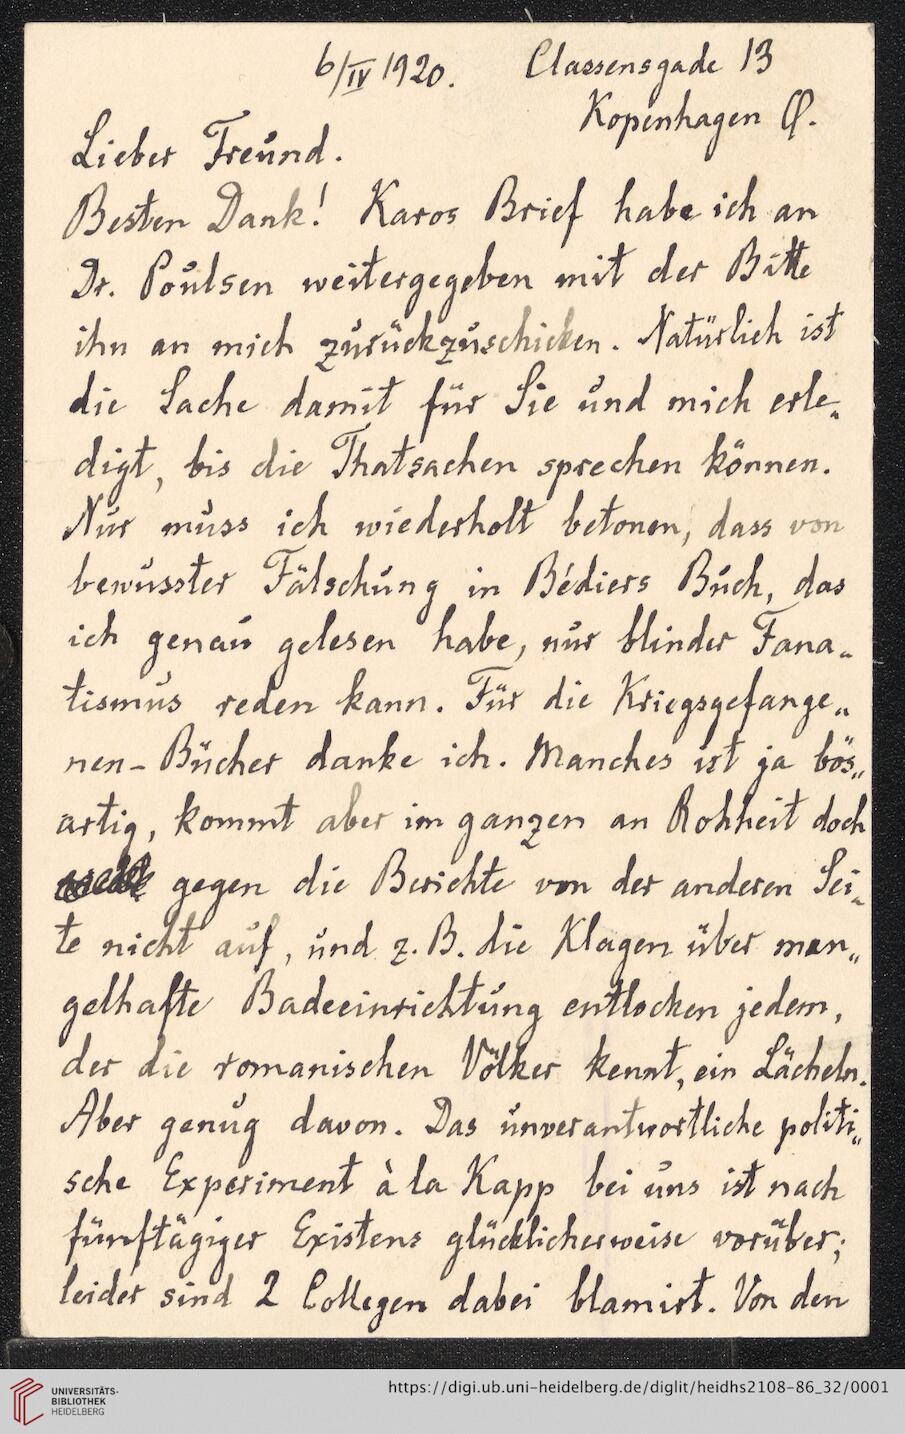 6/IV 1920. Classensgade 13
Kopenhagen Ø.
Lieber Freund.
Besten Dank! Karos Brief habe ich an
Dr. Poulsen weitergegeben mit der Bitte
ihn an mich zurückzuschicken. Natürlich ist
die Sache damit für Sie und mich erle-
digt, bis die Thatsachen sprechen können.
Nur muss ich wiederholt betonen, dass von
bewusster Fälschung in Bédiers Buch, das
ich genau gelesen habe, nur blinder Fana-
tismus reden kann. Für die Kriegsgefange-
nen-Bücher danke ich. Manches ist ja bös-
artig, kommt aber im ganzen an Rohheit doch
gegen die Berichte von der anderen Sei-
te nicht auf, und z. B. die Klagen über man-
gelhafte Badeeinrichtung entlocken jedem,
der die romanischen Völker kennt, ein Lächeln.
Aber genug davon. Das unverantwortliche politi-
sche Experiment à la Kapp bei uns ist nach
fünftägiger Existens glücklicherweise vorüber;
leider sind 2 Collegen dabei blamirt. Von den
UNIVERSITÄTS-
BIBLIOTHEK
HEIDELBERG
https://digi.ub.uni-heidelberg.de/diglit/heidhs2108-86_32/0001